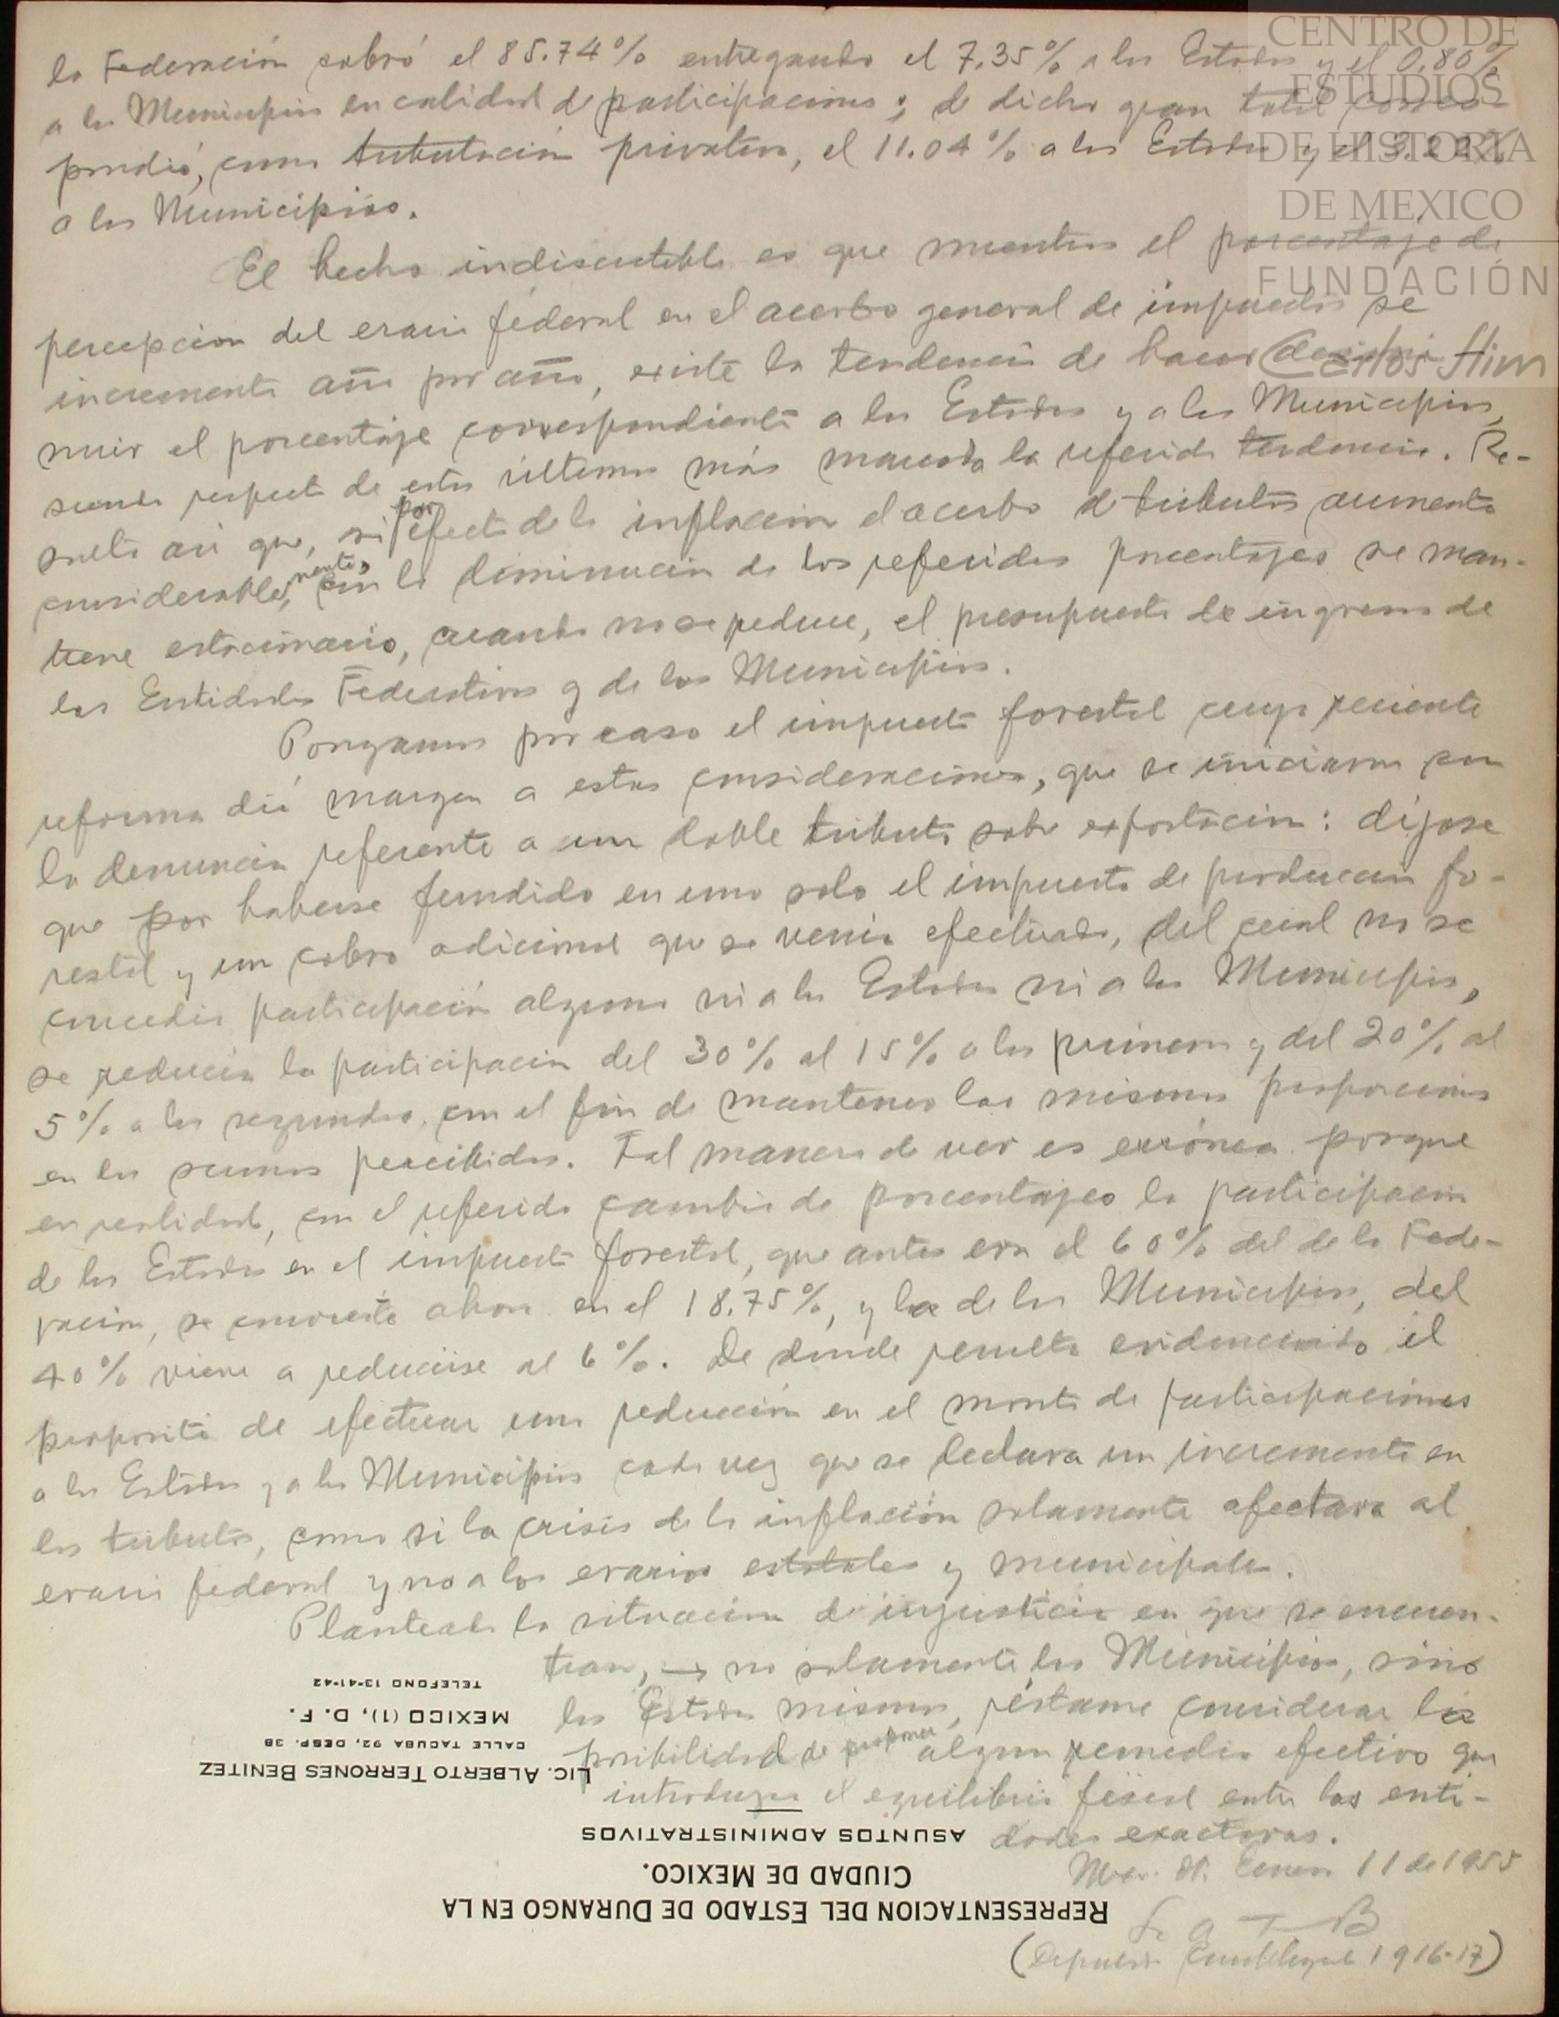 la Federación cobró el 85.74% entregando el 7.35% a los Estados y el 0.80%
a los Municipios en calidad de participaciones; de dicho gran total corres-
pondió, como tributación privativa, el 11.04% a los Estados y el
a los Municipios.
El hecho indiscutible es que mientras el porcentaje de
percepcion del erario federal en el acerbo general de impuestos se
incrementa año por año, existe la tendencia de hacer
nuir el porcentaje correspondiente a los Estados y a los Municipios,
siendo respecto de estos últimos más marcada la referida tendencia. Re-
sulta asi que, si por efecto de la inflacion el acerbo de tributos aumenta
considerablemente, con la diminucion de los referidos porcentajes se man-
tiene estacionario, cuando no se reduce, el presupuesto de ingresos de
las Entidades Federativas y de los Municipios.
Pongamos por caso el impuesto forestal cuya reciente
reforma dió margen a estas consideraciones, que se iniciaron con
la denuncia referente a un doble tributo sobre exportacion: díjose
que por haberse fundido en uno solo el impuesto de produccion fo-
restal y un cobro adicional que se venia efectuando, del cual no se
concedia participación alguna ni a los Estados ni a los Municipios,
se reducia la participacion del 30% al 15% a los primeros y del 20% al
5% a los segundos, con el fin de mantener las mismas proporciones
en las sumas percibidas. Tal manera de ver es errónea porque
en realidad, con el referido cambio de porcentajes la participacion
de los Estados en el impuesto forestal, que antes era el 60% del de la Fede-
racion, se convierte ahora en el 18.75%, y la de los Municipios, del
40% viene a reducirse al 6%. De donde resulta evidenciado el
proposito de efectuar una reducción en el monto de participaciones
a los Estados y a los Municipios cada vez que se declara un incremento en
los tributos, como si la crisis de la inflación solamente afectara al
erario federal y no a los erarios estatales y municipales.
Planteada la situacion de injusticia en que se encuen-
tran, → no solamente los Municipios, sino
los Estados mismos, réstame considerar la
posibilidad de proponer algun remedio efectivo que
introduzca el equilibrio fiscal entre las enti-
dades exactoras.
Mex. D.F. Enero 11 de 1955
L. A T B
(Diputado Constituyente 1916-17)
REPRESENTACION DEL ESTADO DE DURANGO EN LA
CIUDAD DE MEXICO.
ASUNTOS ADMINISTRATIVOS
LIC. ALBERTO TERRONES BENITEZ
CALLE TACUBA 92, DESP. 38
MEXICO (1), D. F.
TELEFONO 13-41-42
CENTRO DE
ESTUDIOS
DE HISTORIA
DE MEXICO
FUNDACIÓN
Carlos Slim